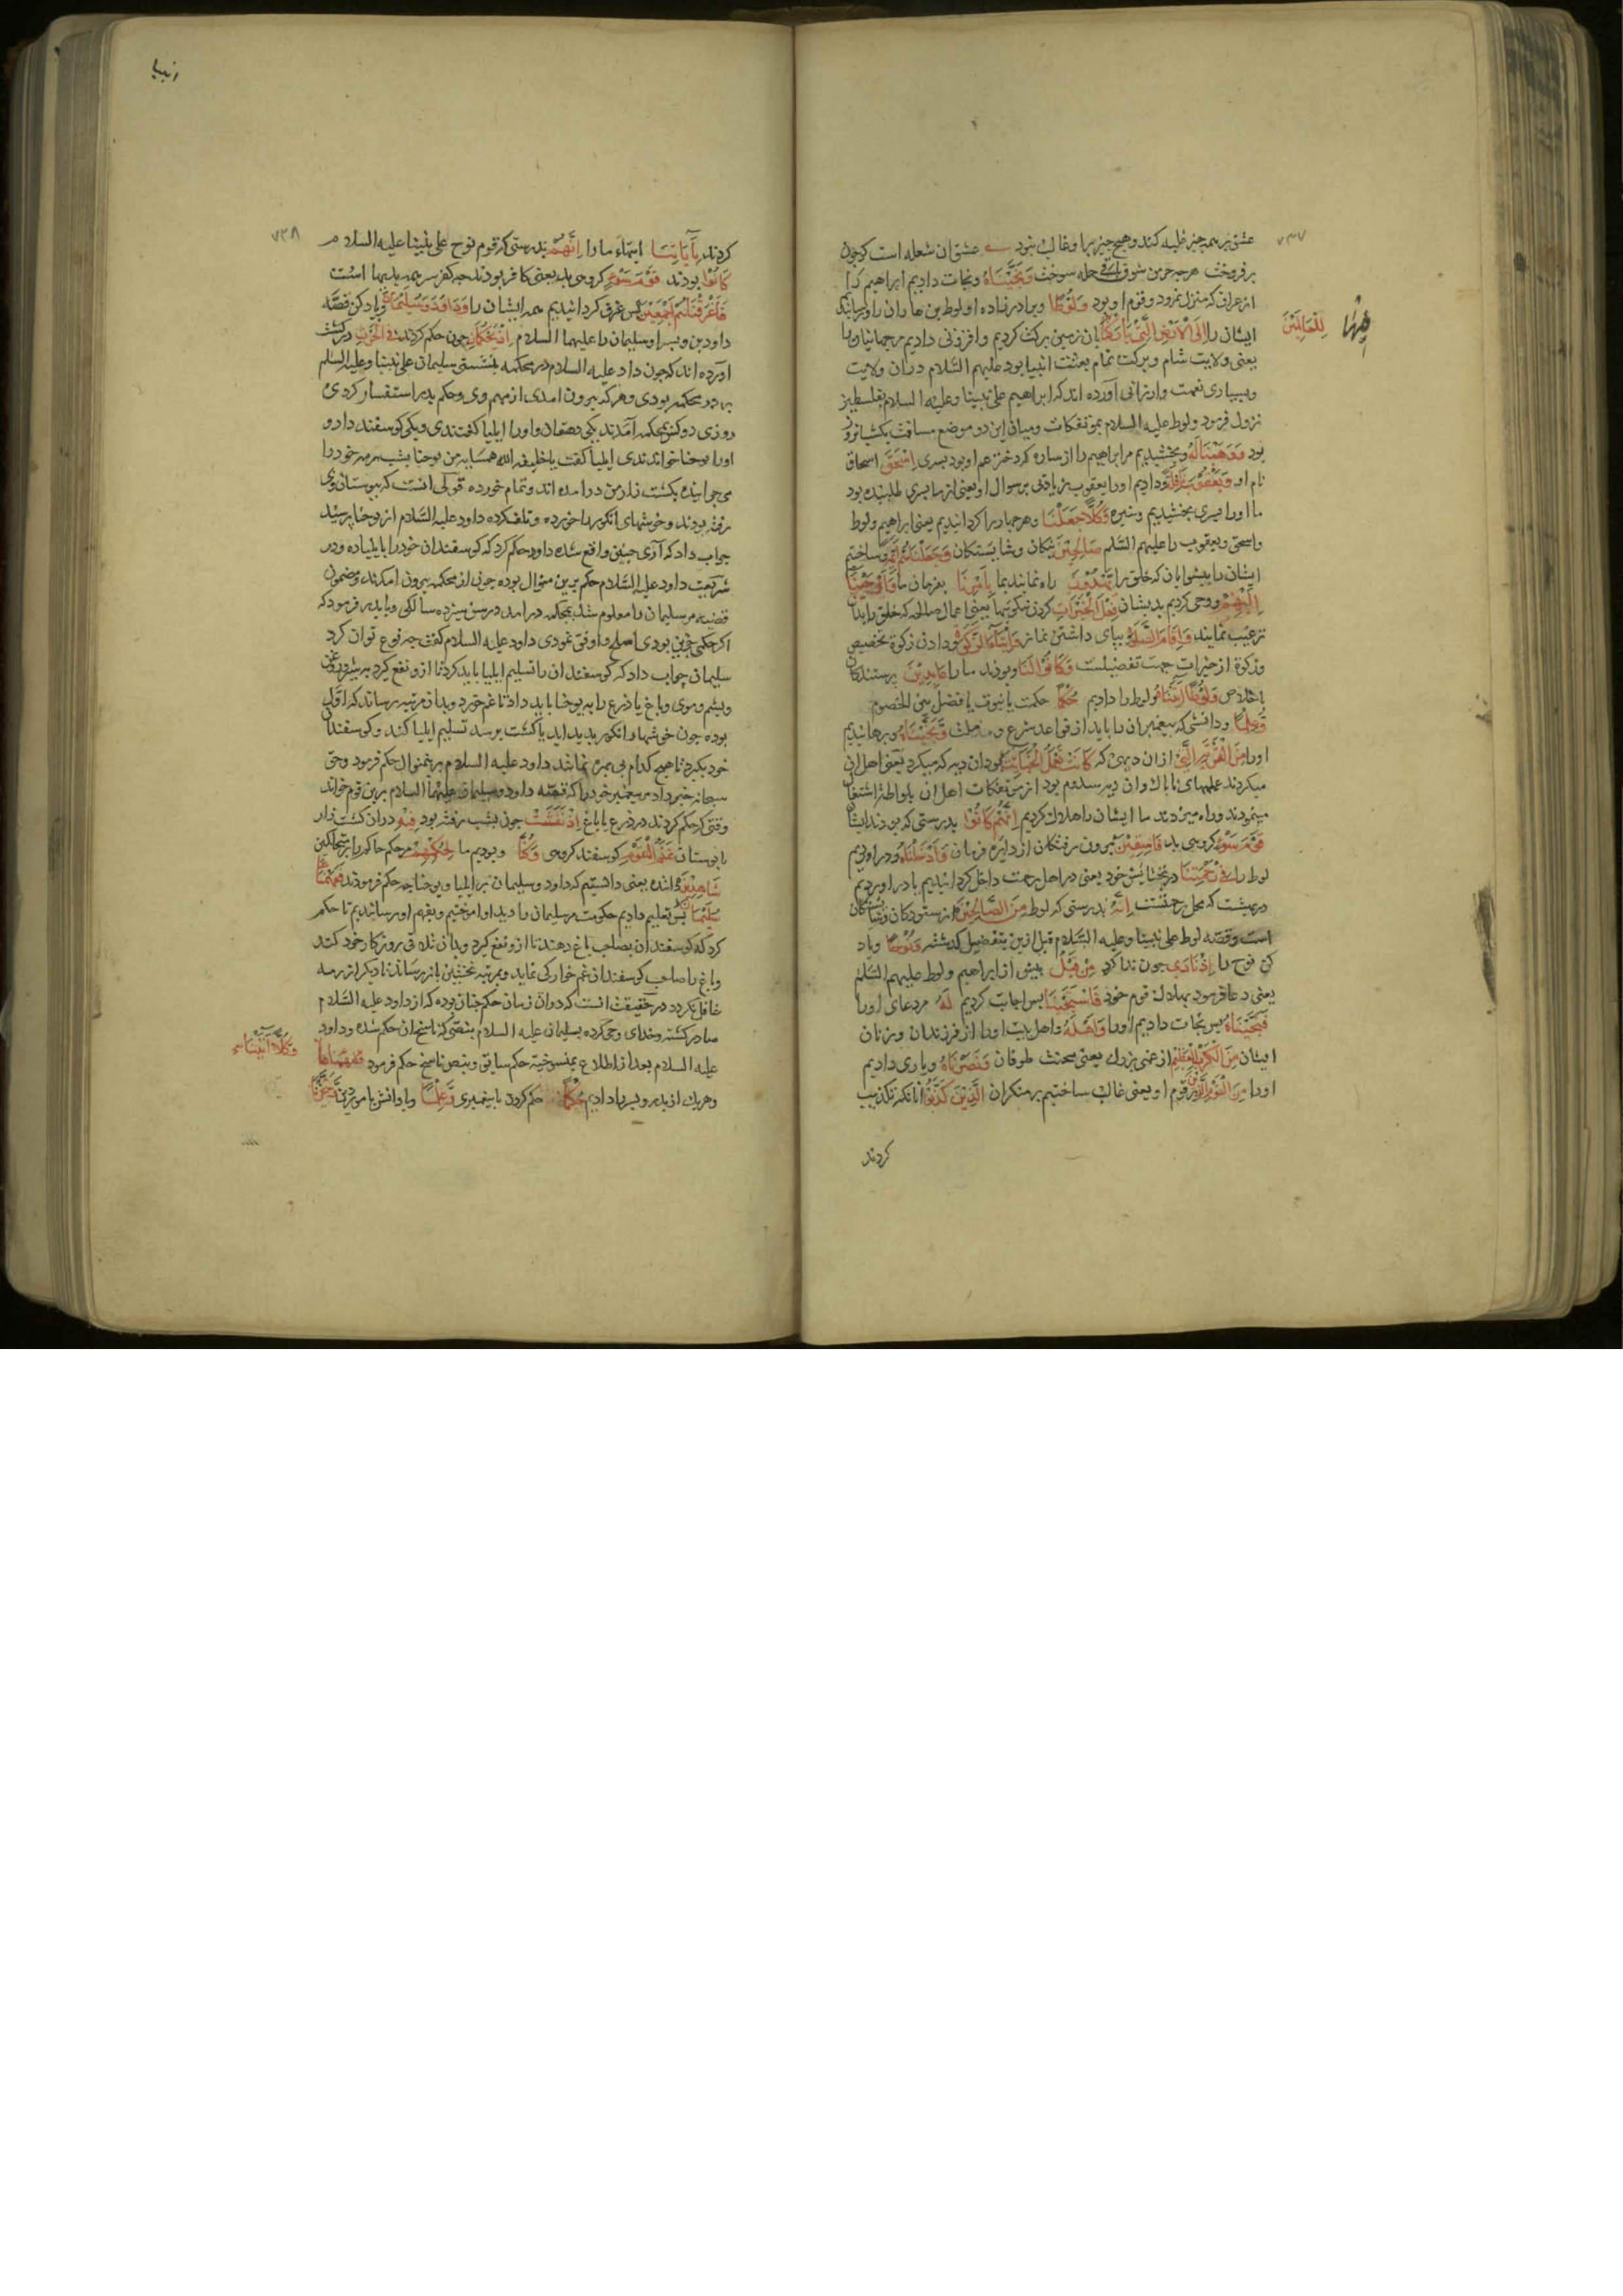 ۷۳۷
عشق بر همه چیز غلبه کند و هیچ چیز برا و غالب نبود عشق ان شعله است کو چون
بر فروخت هر چه جز من شوق جمله سوخت وَنَجَّيْنَاهُ و نجات دادیم ابراهیم را
از عراق که منزل نمرود و قوم او بود وَلُوطًا و برادر زاده او لوط بن هاران را و رسانید
ایشان را اِلَى الْاَرْضِ الَّتِى بَارَكْنَا بان زمین برکت کردیم و افزونی دادیم مر جهانیان را
فِيْهَا
لِلْعَالَمِيْنَ
یعنی ولایت شام و برکت تمام بعثت انبیا بود علیهم السّلام دران ولایت
و بسیاری نعمت و ارزانی آورده اند که ابراهیم علی نبینا و علیه السلام بفلسطین
نزول فرمود و لوط علیه السلام بموتفکات و میان این دو موضع مسافت یکشبانروز
بود وَوَهَبْنَا لَهُ و بخشیدیم مر ابراهیم را از ساره که دختر عم او بود پسری اِسْحٰقَ اسحاق
نام او وَيَعْقُوْبَ نَافِلَةً و دادیم او را یعقوب زیادتی بر سوال او یعنی از ما پسری طلبیده بود
ما او را پسری بخشیدیم و نبیره وَكُلًّا جَعَلْنَا و هر چهار را کردانیدیم یعنی ابراهیم و لوط
و اسحق و یعقوب را علیهم السّلم صَالِحِيْنَ نیکان و شایستکان وَجَعَلْنَاهُمْ اَئِمَّةً و ساختیم
ایشان را پیشوایان که خلق را يَهْدُوْنَ راه نمایند بما بِاَمْرِنَا بفرمان ما وَاَوْحَيْنَا
اِلَيْهِمْ و وحی کردیم بدیشان فِعْلَ الْخَيْرَاتِ کردن نیکوئیها یعنی اعمال صالحه که خلق را بدان
ترغیب نمایند وَاِقَامَ الصَّلٰوةِ بپای داشتن نماز وَاِيْتَاءَ الزَّكٰوةِ و دادن زکوة تخصیص
و زکوة از خیرات جهت تفضیلست وَكَانُوْا لَنَا و بودند ما را عَابِدِيْنَ پرستندکان
باخلاص وَلُوْطًا اٰتَيْنَاهُ و لوط را دادیم حُكْمًا حکمت یا نبوت یا فضل بین الخصوم
وَعِلْمًا و دانشی که پیغمبران را باید از قواعد شرع و ملت وَنَجَّيْنَاهُ و برهانیدیم
او را مِنَ الْقَرْيَةِ الَّتِى ازان دیهی که كَانَتْ تَعْمَلُ الْخَبَائِثَ بودان دیه که میکرد یعنی اهل ان
میکردند عملهای ناپاك و ان دیه سدوم بود از موتفکات اهل ان بلواطة اشتغال
مینمودند و راه میزدند ما ایشان را هلاك کردیم اِنَّهُمْ كَانُوْا بدرستی که بودند ایشان
قَوْمَ سَوْءٍ کروهی بد فَاسِقِيْنَ بیرون رفتکان از دایرهٔ فرمان وَاَدْخَلْنَاهُ و دراوردیم
لوط را فِى رَحْمَتِنَا در بخشایش خود یعنی در اهل رحمت داخل کردانیدیم یا دراوردیم
در بهشت که محل رحمتست اِنَّهُ بدرستی که لوط مِنَ الصَّالِحِيْنَ از ستودکان و شایستکان
است و قصّه لوط علی نبینا و علیه السّلام قبل ازین بتفضیل کدشته وَنُوْحًا و یاد
کن نوح را اِذْ نَادٰى چون ندا کرد مِنْ قَبْلُ پیش از ابراهیم و لوط علیهم السّلم
یعنی دعا فرمود بهلاك قوم خود فَاسْتَجَبْنَا پس اجابت کردیم لَهُ مر دعای او را
فَنَجَّيْنَاهُ پس نجات دادیم او را وَاَهْلَهُ و اهل بیت او را از فرزندان و زنان
ایشان مِنَ الْكَرْبِ الْعَظِيْمِ از غمی بزرك یعنی محنت طوفان وَنَصَرْنَاهُ و یاری دادیم
او را مِنَ الْقَوْمِ بر قوم او یعنی غالب ساختیم بر منکران الَّذِيْنَ كَذَّبُوْا انانکه تکذیب
کردند
انبیا
۷۳۸
کردند بِاٰيَاتِنَا ایتهاء ما را اِنَّهُمْ بدرستی که قوم نوح علی نبینا علیه السلام
كَانُوْا بودند قَوْمَ سَوْءٍ کروهی بد یعنی کافر بودند چه کفر سر همه بدیها است
فَاَغْرَقْنَاهُمْ اَجْمَعِيْنَ پس غرق کردانیدیم همه ایشان را وَدَاوٗدَ وَسُلَيْمَانَ و یاد کن قصّه
داود بن و پسر او سلیمان را علیهما السلام اِذْ يَحْكُمَانِ چون حکم کردند فِى الْحَرْثِ در کشت
اورده اند که چون داد علیه السلام در محکمه بنشستی سلیمان علی نبینا و علیه السّلم
بر در محکمه بودی و هر که بیرون امدی از مهم وی و حکم پدر استفسار کردی
روزی دو کس بمحکمه آمدند یکی دهقان و او را ایلیا کفتندی و یکی کوسفند دار و
او را یوحنا خواندندی ایلیا کفت یا خلیفه الله همسایه من یوحنا بشب رمه خود را
می چرانیده بکشت زار من درامده اند و تمام خورده قولی انست که ببوستان وی
رفته بودند و خوشهای انکور را خورده و تلف کرده داود علیه السّلام از یوحنا پرسید
جواب داد که آری چنین واقع شده داود حکم کرد که کوسفندان خود را بایلیا ده و در
شریعت داود علیه السّلام حکم برین منوال بوده چون از محکمه بیرون امدند و مضمون
قضیه مر سلیمان را معلوم شد بمحکمه درامد در سن سیزده سالکی و با پدر فرمود که
اکر حکمی جزین بودی اصلح و اوفق نمودی داود علیه السلام کفت چه نوع توان کرد
سلیمان جواب داد که کوسفندان را تسلیم ایلیا باید کرد تا ازو نفع کیرد بشیر و روغن
و پشم و موی و باغ یا ذرع را به یوحنا باید داد تا غم خورد و بدان مرتبه رساند که اوّل
بوده چون خوشها و انکور پدید اید یا کشت برسد تسلیم ایلیا کند و کوسفندان
خود بکیرد تا هیچ کدام بی بهره نمانند داود علیه السلام برینمنوال حکم فرمود و حق
سبحانه خبر داد مر پیغمبر خود را که قصّه داود و سلیمان علیهما السلام برین قوم خواند
وقتی که حکم کردند در ذرع یا باغ اِذْ نَفَشَتْ چون بشب رفته بود فِيْهِ دران کشت زار
یا بوستان غَنَمُ الْقَوْمِ کوسفند کروهی وَكُنَّا و بودیم ما لِحُكْمِهِمْ مر حکم حاکم را و متحاکمین
شَاهِدِيْنَ داننده یعنی داشتیم که داود و سلیمان بر ایلیا و یوحنا چه حکم فرمودند فَفَهَّمْنَاهَا
سُلَيْمَانَ پس تعلیم دادیم حکومت مر سلیمان را و بد او اموختیم و بفهم او رسانیدیم تا حکم
کرد که کوسفندان بصاحب باغ دهند تا ازو نفع کیرد و بدان تلافی روزکار خود کند
و باغ را صاحب کوسفندان غم خوارکی نماید و بمرتبه نخستین باز رساند تا دیکر از رمه
غافل نکردد در حقیقت انست که دران زمان حکم چنان بوده که از داود علیه السّلام
صادر کشته و خدای وحی کرده بسلیمان علیه السلام بنصّی که ناسخ ان حکم شده و داود
علیه السلام بعد از اطلاع بمنسوخیّه حکم سابق و بنص ناسخ حکم فرمود
وَكُلًّا اٰتَيْنَا
و هریك از پدر و پسر را دادیم حُكْمًا حکم کردن یا پیغمبری وَعِلْمًا و یا دانش بامور دین وَسَخَّرْنَا